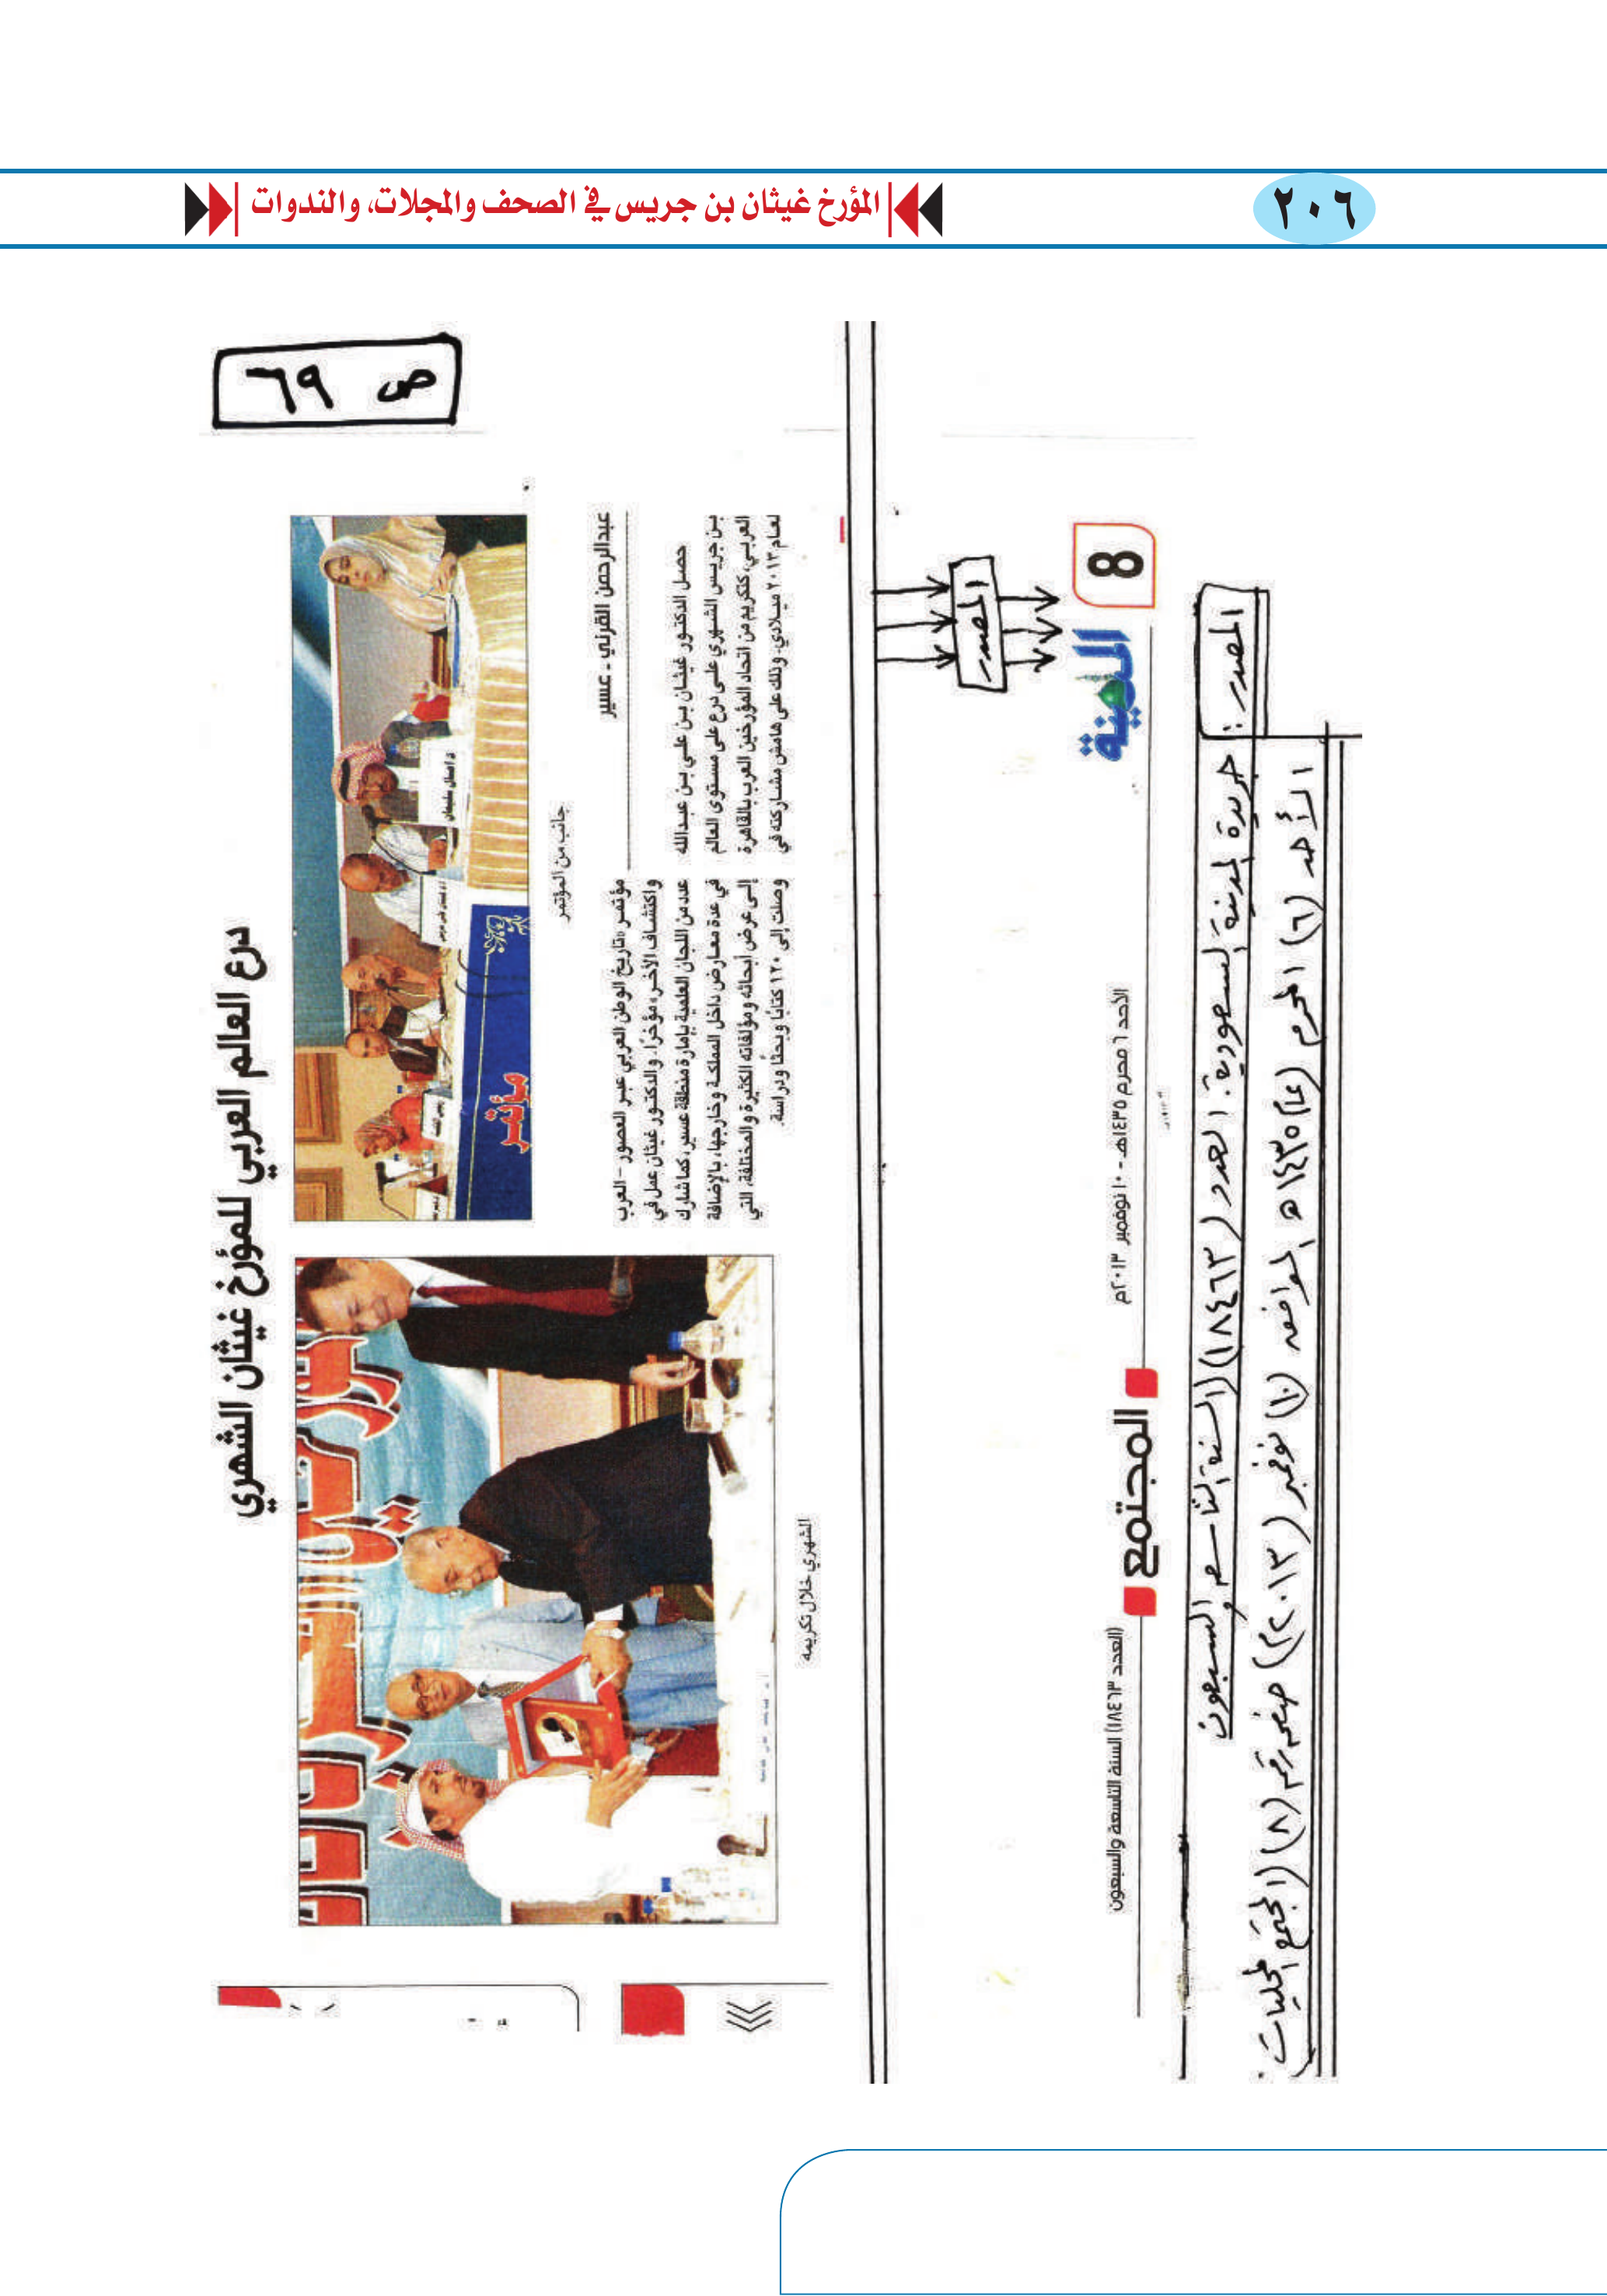 ٢٠٦
المؤرخ غيثان بن جريس في الصحف والمجلات، والندوات
ص ٦٩
درع العالم العربي للمؤرخ غيثان الشهري
جانب من المؤتمر
الشهري خلال تكريمه
عبدالرحمن القرني - عسير
حصل الدكتور غيثان بن علي بن عبدالله
بن جريس الشهري على درع على مستوى العالم
العربي، كتكريم من اتحاد المؤرخين العرب بالقاهرة
لعام ٢٠١٣ ميلادي. وذلك على هامش مشاركته في
مؤتمر «تاريخ الوطن العربي عبر العصور - العرب
واكتشاف الآخر» مؤخرًا. والدكتور غيثان عمل في
عدد من اللجان العلمية بإمارة منطقة عسير، كما شارك
في عدة معارض داخل المملكة وخارجها، بالإضافة
إلى عرض أبحاثه ومؤلفاته الكثيرة والمختلفة، التي
وصلت إلى ١٢٠ كتابًا وبحثًا ودراسة.
المصدر
8
المدينة
الأحد ٦ محرم ١٤٣٥هـ - ١٠ نوفمبر ٢٠١٣م
المجتمع
(العدد ١٨٤٦٣) السنة التاسعة والسبعون
المصدر: جريدة المدينة السعودية. العدد (١٨٤٦٣) (السنة التاسعة والسبعون
الأحد (٦) المحرم (عام ١٤٣٥هـ الموافق (١٠) نوفمبر (٢٠١٣م) صفحة رقم (٨) (المجتمع المحليات).